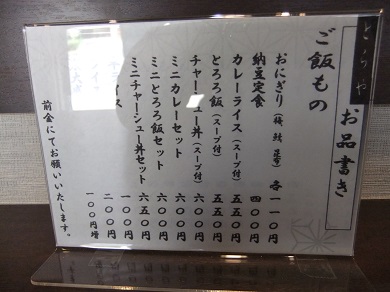 とろや
お品書き
ご飯もの
おにぎり(梅、鮭、昆布) 各一一〇円
納豆定食 四〇〇円
カレーライス(スープ付) 五五〇円
とろろ飯(スープ付) 五五〇円
チャーシュー丼(スープ付) 六〇〇円
ミニカレーセット 六〇〇円
ミニとろろ飯セット 六五〇円
ミニチャーシュー丼セット 六五〇円
イス 一〇〇円
二〇〇円
大 一〇〇円増
前金にてお願いいたします。